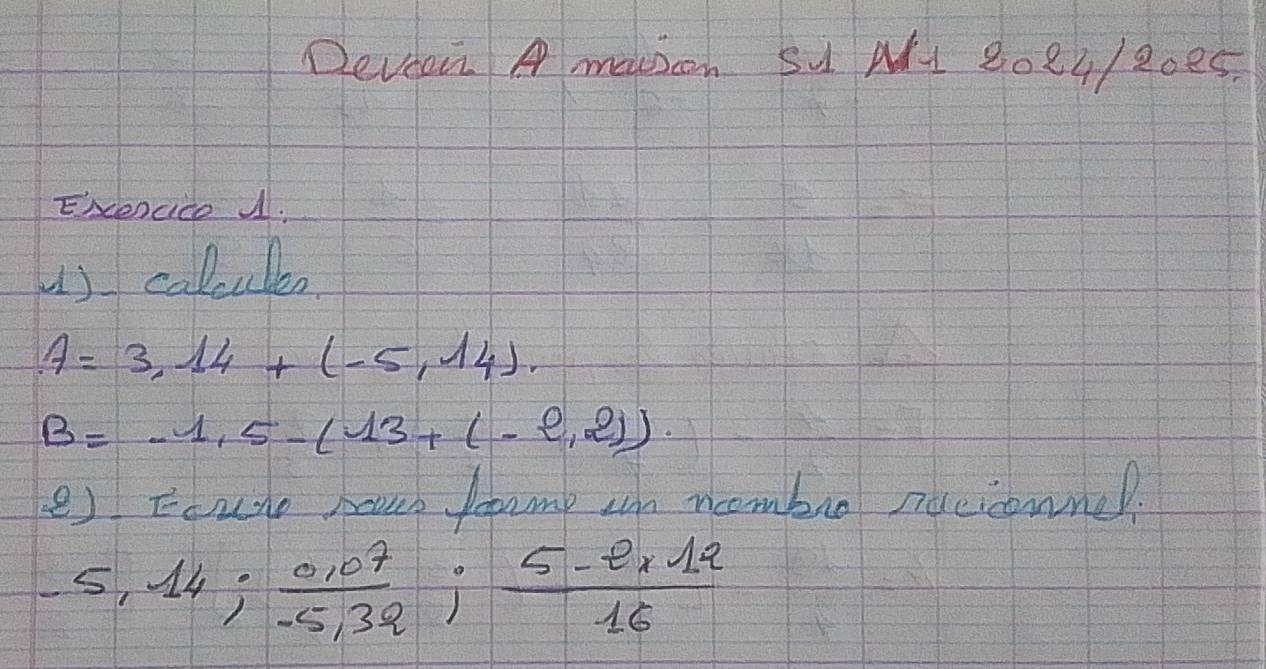 Devoir A maison S1 N1 2024/2025.
Exercice 1:
1)- calculer.
A = 3,14 + (-5,14).
B = -1,5 - (13 + (-2,2)).
2)- Ecrire sous forme un nombre racionnel:
-5,14 ; 0,07/-5,32 ; 5-2x12/16